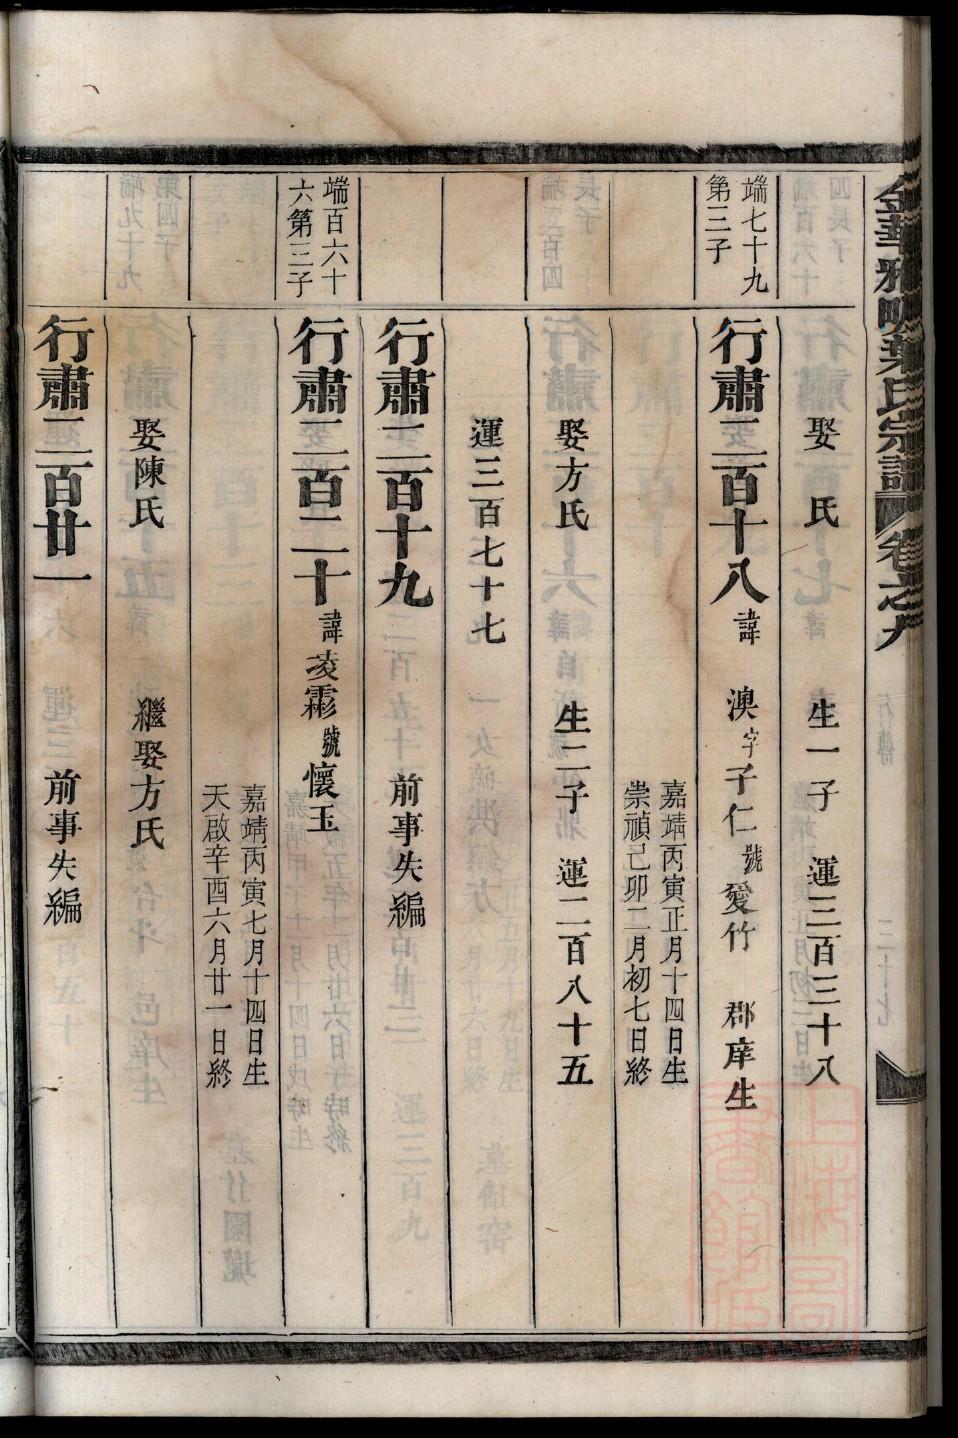 金華雅畈葉氏宗譜 卷之九
娶 氏 生一子 運三百三十八
端七十九
第三子
行肅二百十八 諱 澳 字子仁 號愛竹 郡庠生
嘉靖丙寅正月十四日生
崇禎己卯二月初七日終
娶方氏 生二子 運二百八十五
運三百七十七
行肅二百十九 前事失編
端百六十
六第三子
行肅二百二十 諱凌霨 號懷玉
嘉靖丙寅七月十四日生
天啟辛酉六月廿一日終
娶陳氏 繼娶方氏
行肅二百廿一 前事失編
上海圖
書館藏